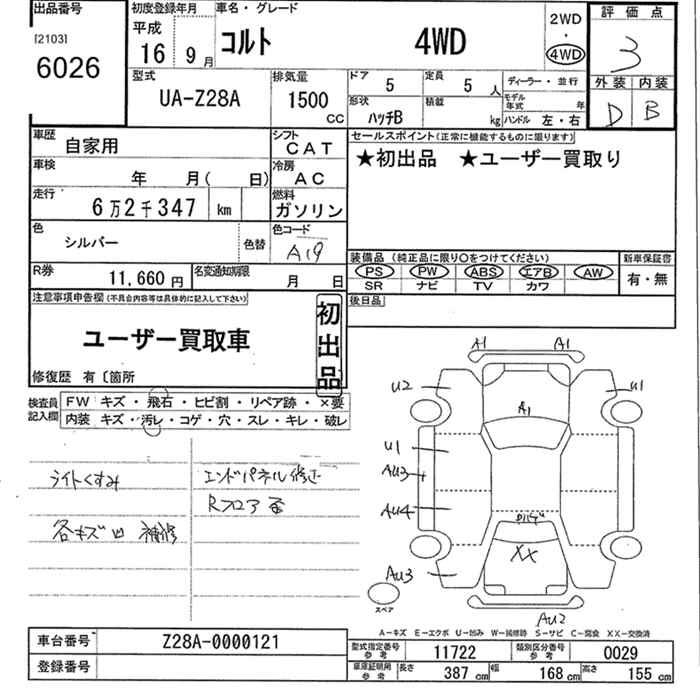 出品番号
[2103]
6026
初度登録年月
平成
16年 9月
車名・グレード
コルト 4WD
2WD
・
4WD
評価点
3
外装 内装
D B
型式
UA-Z28A
排気量
1500 CC
ドア 5
定員 5 人
形状 ハッチB
積載 kg
ディーラー・並行
モデル年式 年
ハンドル 左・右
車歴 自家用
シフト CAT
車検 年 月( 日)
冷房 AC
走行 6万2千347 km
燃料 ガソリン
色 シルバー 色替
色コード A19
R券 11,660円
名変通知期限 月 日
セールスポイント(正常に機能するものに限ります)
★初出品 ★ユーザー買取り
装備品 (純正品に限り○をつけてください)
PS PW ABS エアB AW
SR ナビ TV カワ
新車保証書
有・無
後日品
注意事項申告欄 (不具合内容等は具体的に記入して下さい)
ユーザー買取車
初出品
修復歴 有〔箇所
検査員記入欄
FW キズ・飛石・ヒビ割・リペア跡・×要
内装 キズ・汚レ・コゲ・穴・スレ・キレ・破レ
ライトくすみ
各キズ凹 補修
エンドパネル修正
Rフロア歪
A1 A1
U2 U1
A1
U1
AU3
AU4
XX
AU3
スペア
AU2
A-キズ E-エクボ U-凹み W-補修跡 S-サビ C-腐食 XX-交換済
車台番号 Z28A-0000121
登録番号
型式指定番号 参考 11722
類別区分番号 参考 0029
車庫証明用 参考 長さ 387 cm 幅 168 cm 高さ 155 cm